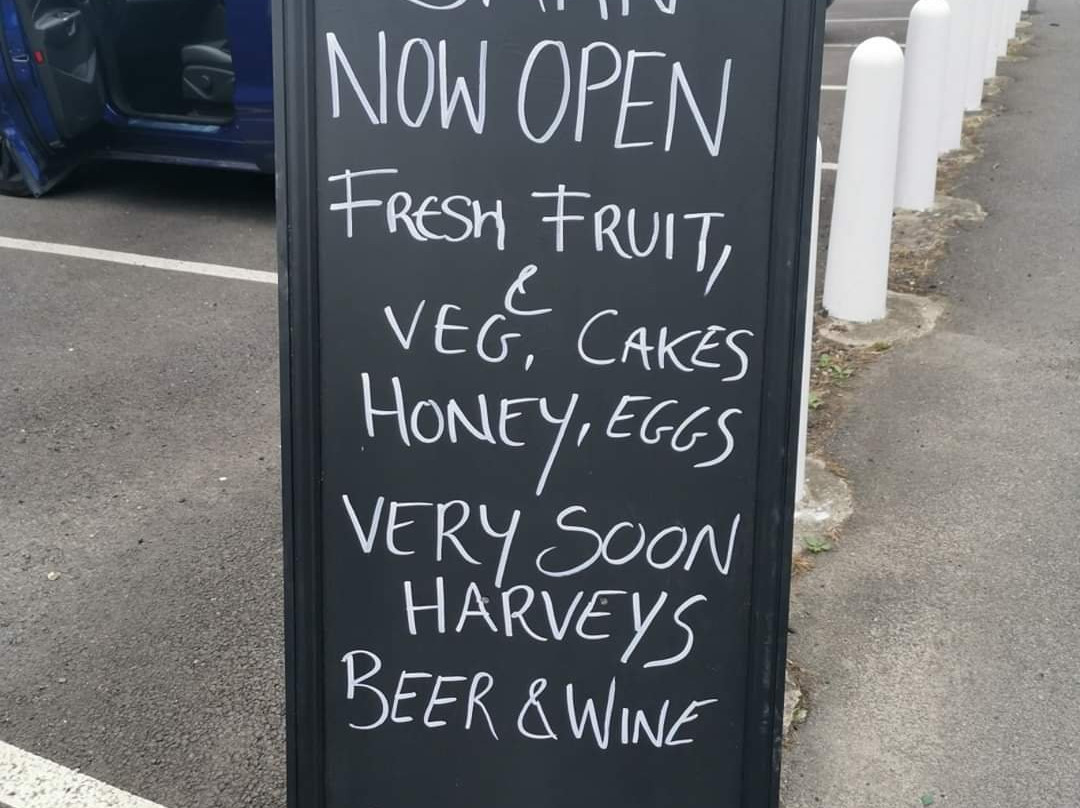 NOW OPEN
FRESH FRUIT,
&
VEG, CAKES
HONEY, EGGS
VERY SOON
HARVEYS
BEER & WINE